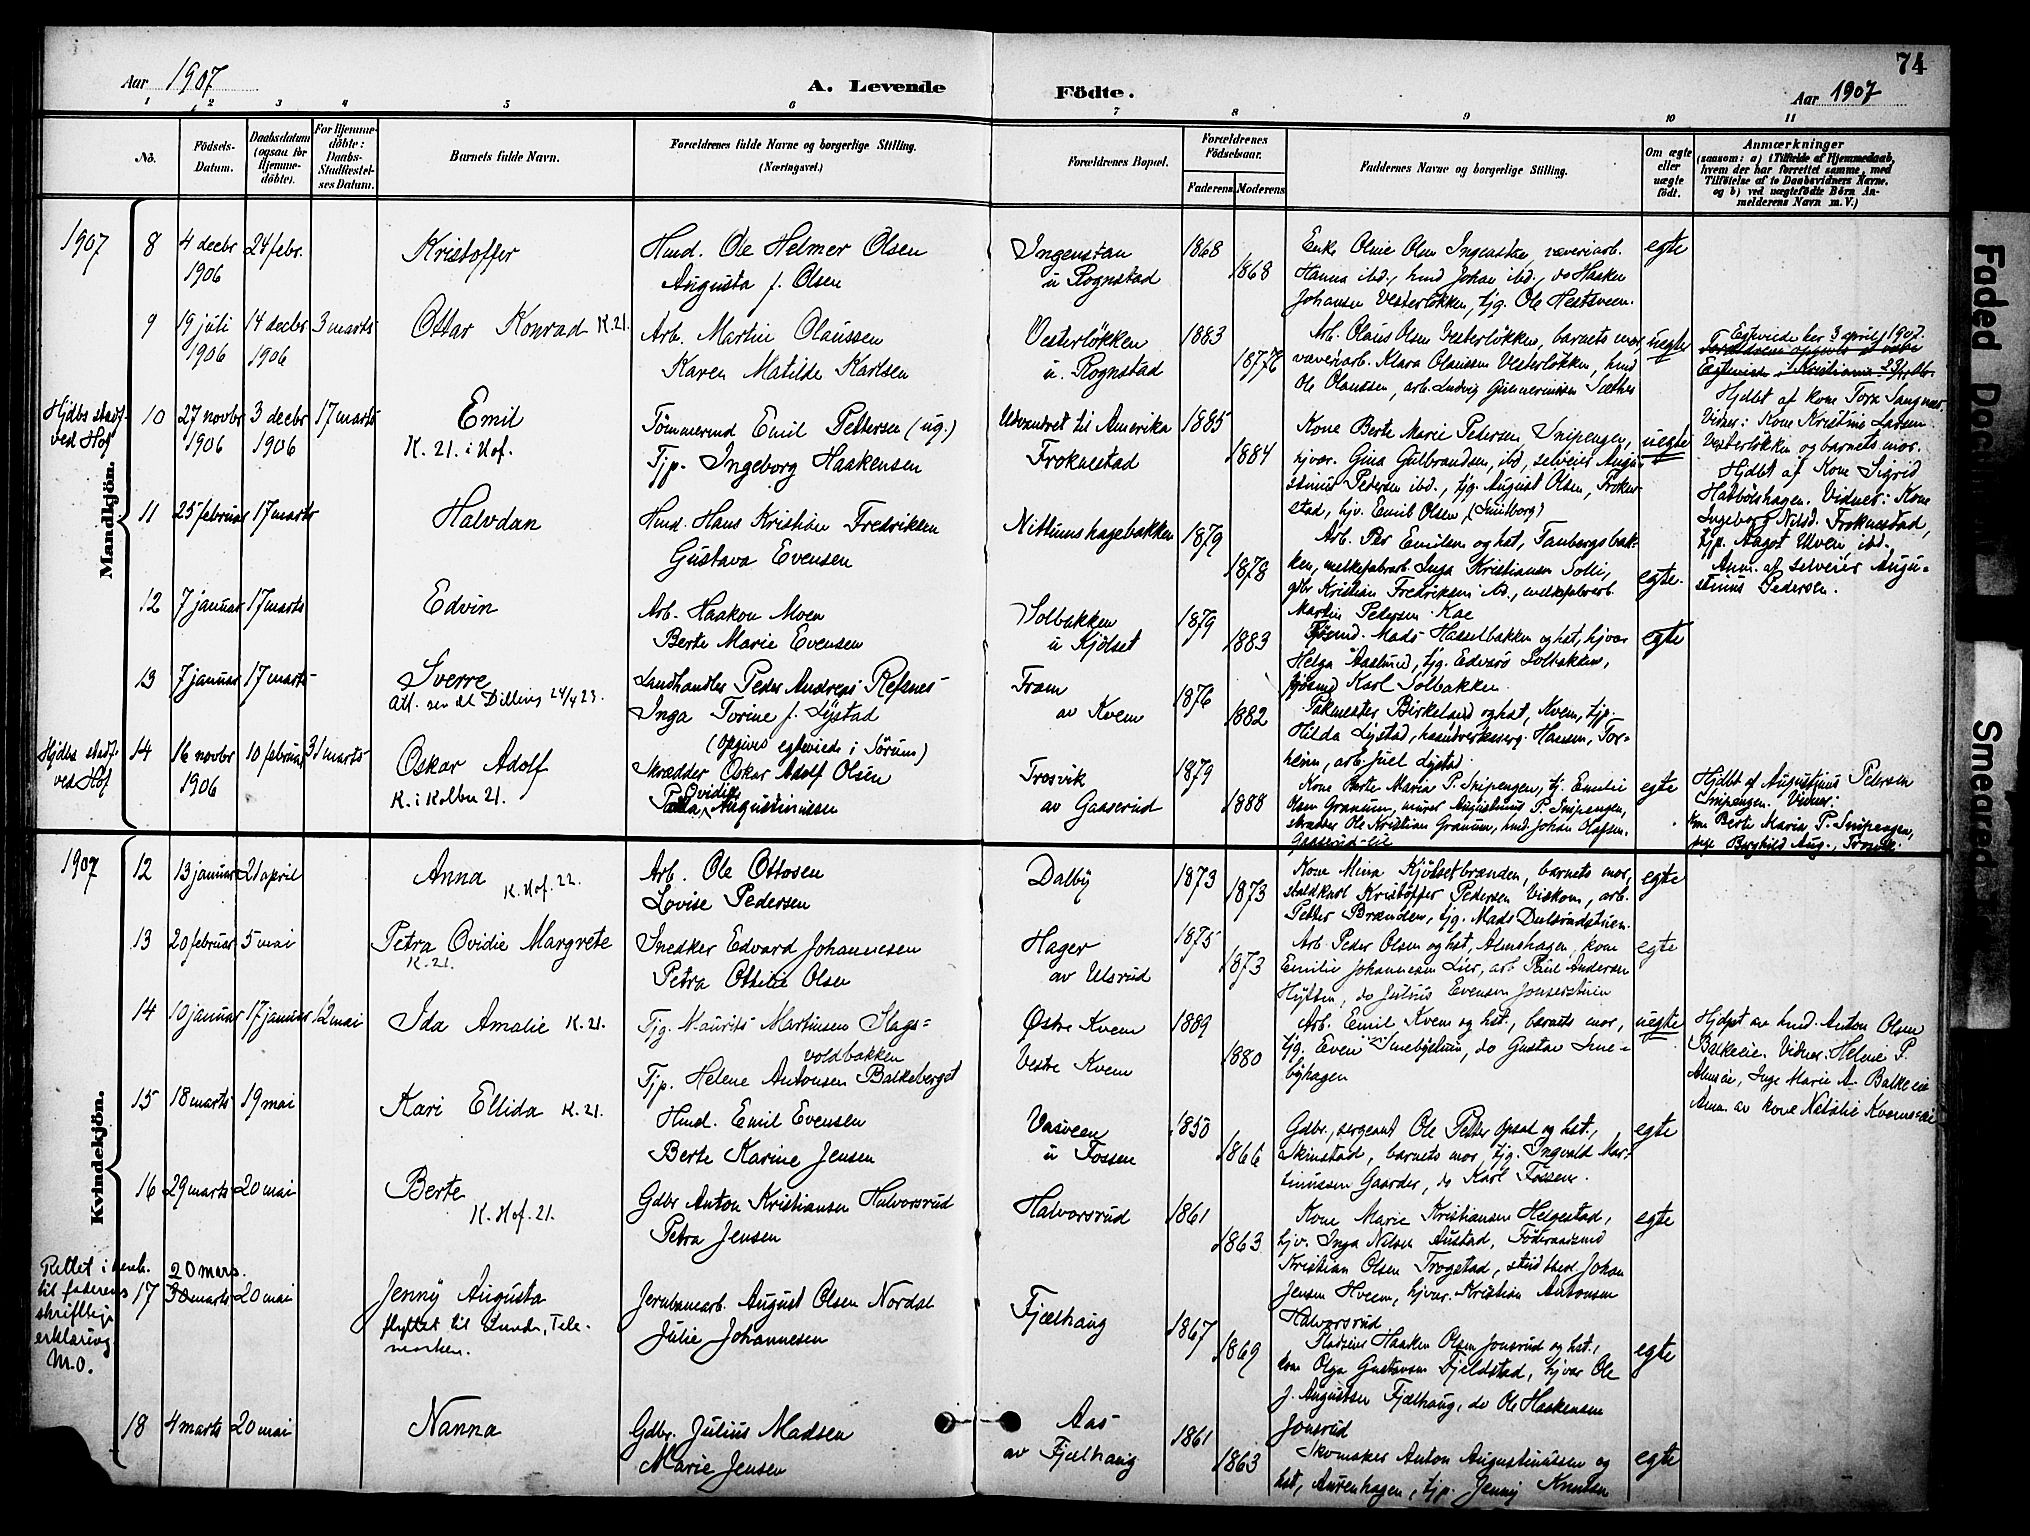 74
Aar 1907
A. Levende Födte.
Aar 1907
1 2 3 4 5 6 7 8 9 10 11
No.
Födsels-Datum.
Daabsdatum (ogsaa for Hjemme-döbte).
For Hjemme-döbte: Daabs-Stadfæstel-ses Datum.
Barnets fulde Navn.
Forældrenes fulde Navne og borgerlige Stilling.
(Næringsvei.)
Forældrenes Bopæl.
Forældrenes Födselsaar.
Faderens Moderens
Faddernes Navne og borgerlige Stilling.
Om ægte eller uægte født.
Anmærkninger
(saasom: a) i Tilfælde af Hjemmedaab, hvem der har forrettet samme, med Tilföielse af to Daabsvidners Navne, og b) ved uægtefödte Börn Anmelderens Navn m. V.)
Mandkjön.
1907
8 4 decbr 1906 24 febr.
Kristoffer
Hmd. Ole Helmer Olsen
Augusta f. Olsen
Ingenstan
u Rognstad
1868
1868
Hanna ibd., hmd Johan ibd., do Haaken
Johansen Vesterløkken, tjg. Ole Hestsveen.
egte
9 19 juli 1906 14 decbr 1906 3 marts
Ottar Konrad K. 21.
Arb. Martin Olaussen
Karen Matilde Karlsen
Vesterløkken
u. Rognstad
1883
Arb. Olaus Olsen Vesterløkken, barnets mor,
væveriarb. Klara Olaussen Vesterløkken, hmd
Ole Olaussen, arb. Ludvig Gunneriussen Sæther
uegte
Egteviede her 3 april 1907.
Hjdbs stadf.
ved Hof
10 27 novbr 1906 3 decbr 1906 17 marts
Emil
K. 21. i Hof.
Tömmermd Emil Pettersen (ug.)
Tjp. Ingeborg Haakensen
Udvandret til Amerika
Froknestad
1885
1884
Kone Berte Marie Pedersen Snipengen,
hjvar. Gina Gulbrandsen, ibd, selveier Augu-
stinus Pedersen ibd., tjg. August Olsen, Frokne-
stad, hjv. Emil Olsen,
uegte
Vidner: Kone Kristine Larsen
Vesterløkken og barnets mor.
Hjdbt af Kone Sigrid
Hadbölshagen. Vidner: Kone
Ingeborg Nilsd. Froknestad,
tjp. Aagot Ulven, ibd.
Anm. af selveier Augu-
stinus Pedersen.
11 25 februar 17 marts
Halvdan
Hmd. Hans Kristian Fredriksen
Gustava Evensen
Nittumshagebakken
1879
1878
Arb. Per Emilsen og hst, Faubergsbak-
ken, melkefabrarb. Inga Kristiansen Solli,
gbr Kristian Fredriksen ibd., melkefabrarb.
Martin Pedersen Kae
egte.
12 7 januar 17 marts
Edvin
Arb. Haakon Moen
Berte Marie Evensen
Solbakken
u Kjölset
1879
1883
Mads Hasselbakken og hst, hjvar
Helga Aaslund, tjg. Edvard Solbakken,
Karl Solbakken.
egte
13 7 januar 17 marts
Sverre
Att. sen dl Dilling 24/4 23.
Landhandler Peder Andreas Refsnes
Inga Torine f. Lystad
(Opgives egteviede i Sörum)
Fram
av Kvem
1876
1882
Birkeland og hst, Kvem, tjp.
Hilda Lystad, haandverkssvg. Hansen, Tor-
heim, arb. Juel Lystad.
Hjdbs stadf.
ved Hof
14 16 novbr 1906 10 februar 31 marts
Oskar Adolf
K. i Kolbu 21.
Skrædder Oskar Adolf Olsen
Ovidia
Paula Augustinussen
Trosvik
av Gaaserud
1879
1888
Kone Berte Maria P. Snipengen, tj. Emilie
Olsen Granum, murer Augustinus P. Snipengen,
skrædder Ole Kristian Granum, hmd Johan Olafsen.
Gaaserud-eie
egte
Hjdbt af Augustinus Pedersen
Snipengen. Vidner:
Kone Berte Maria P. Snipengen,
pige Borghild Aug., Trosvik.
Kvindekjön.
1907
12 13 januar 21 april
Anna
K. Hof. 22.
Arb. Ole Ottosen
Lovise Pedersen
Dalby
1873
1873
Kone Mina Kjölsetbrænden, barnets mor,
staldkarl Kristoffer Pedersen Viskom, arb.
Petter Brænden, tjg. Mads Dulsrudstuen
egte
13 20 februar 5 mai
Petra Ovidie Margrete
K. 21.
Snedker Edvard Johannesen
Petra Ottilie Olsen
Hager
av Ulsrud
1875
1873
Arb. Peder Olsen og hst, Almshagen, kone
Emilie Johannesen Lier, arb. Paul Andersen
Hytten, do Julius Evensen Jonserstuen
egte
14 10 januar 17 januar 12 mai
Ida Amalie K. 21.
Tjg. Maurits Martinsen Slags-
voldbakken
Tjp. Helene Antonsen Balkeberget
Østre Kvem
Vestre Kvem
1889
1880
Arb. Emil Kvem og hst., barnets mor,
tjg. Even Smebyhagen, do Gustav Sme-
byhagen
uegte
Hjdpt av hmd. Anton Olsen
Balkeeie. Vidner: Helene P.
Almseie, Inge Marie A. Balkeeie
Anm. av kone Natalie Kvemseie
15 18 marts 19 mai
Kari Ellida K. 21.
Hmd. Emil Evensen
Berte Karine Jensen
Vasveen
u Fossen
1850
1866
Gdbr., sergeant Ole Petter Opsal og hst.,
Skinstad, barnets mor, tjg. Ingvald Mar-
tinussen Gaarder, do Karl Fossen.
egte
16 29 marts 20 mai
Berte
K. Hof. 21.
Gdbr Anton Kristiansen Halvorsrud
Petra Jensen
Halvorsrud
1861
1863
Kone Marie Kristiansen Helgestad,
hjv. Inga Nilsen Austad, Föderaadsmd
Kristian Olsen Trogstad, stud. theol Johan
Jensen Hveem, hjvar. Kristian Antonsen
Halvorsrud
egte
Rettet i henh.
til faderens
skriftlige
erklæring
M.O.
17 20 mars.
30 marts 20 mai
Jenny Augusta
flyttet til Lunde, Tele-
marken.
Jernbanearb. August Olsen Nordal
Julie Johannesen
Fjælhaug
1867
1869
Pladseier Haaken Olsen Jonsrud og hst.,
kone Olga Gustavsen Fjeldstad, hjvar Ole
J. Augustsen Fjælhaug, do Ole Haakensen
Jonsrud
egte
18 4 marts 20 mai
Nanna
Gdbr. Julius Madsen
Marie Jensen
Aas
av Fjælhaug
1861
1863
Skomaker Anton Augustinussen og
hst, Aurenhagen, tjp. Jenny Knutsen
egte
Faded Doc
Smeared